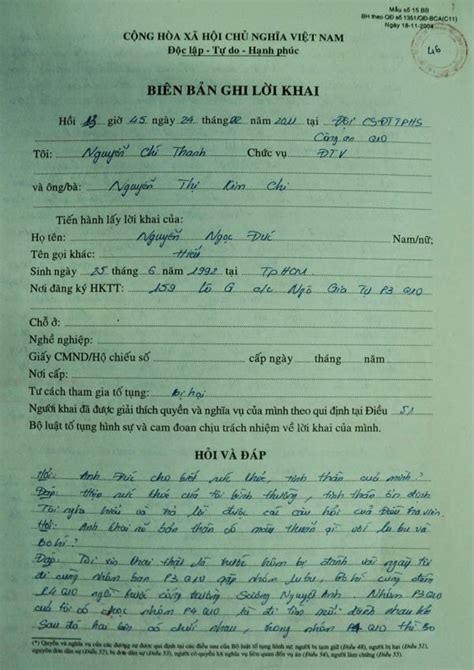 Mẫu số 15 BB
BH theo QĐ số 1351/QĐ-BCA(C11)
Ngày 18-11-2004
46
CỘNG HÒA XÃ HỘI CHỦ NGHĨA VIỆT NAM
Độc lập - Tự do - Hạnh phúc
BIÊN BẢN GHI LỜI KHAI
Hồi 13 giờ 45 ngày 24 tháng 02 năm 2011 tại Đội CSĐTTPHS
Công an Q10
Tôi: Nguyễn Chí Thanh Chức vụ ĐTV
và ông/bà: Nguyễn Thị Kim Chi
Tiến hành lấy lời khai của:
Họ tên: Nguyễn Ngọc Đức Nam/nữ;
Tên gọi khác: Hiếu
Sinh ngày 25 tháng 6 năm 1992 tại TpHCM
Nơi đăng ký HKTT: 159 Lô G c/c Ngô Gia Tự P3 Q10
Chỗ ở:
Nghề nghiệp:
Giấy CMND/Hộ chiếu số cấp ngày tháng năm
Nơi cấp:
Tư cách tham gia tố tụng: bị hại
Người khai đã được giải thích quyền và nghĩa vụ của mình theo qui định tại Điều 51
Bộ luật tố tụng hình sự và cam đoan chịu trách nhiệm về lời khai của mình.
HỎI VÀ ĐÁP
Hỏi: Anh Đức cho biết sức khỏe, tinh thần của mình?
Đáp: Hiện sức khỏe của tôi bình thường, tinh thần ổn định
Tôi nghe hiểu và trả lời được các câu hỏi của Điều tra viên
Hỏi: Anh khai rõ bản thân có mâu thuẫn gì với lu bu và
Bo hí?
Đáp: Tôi xin khai thật là trước hôm bị đánh vài ngày tôi
đi cùng nhóm bạn P3 Q10 gặp nhóm lu bu, Bo hí cùng đám
P4 Q10 ngồi trước cổng trường Sương Nguyệt Ánh. Nhóm P3Q10
của tôi có nhóm P4 Q10 là đi tìm đánh nhau kế
Sau đó hai bên có chửi nhau, trong nhóm P4 Q10 thì Bo
(*) Quyền và nghĩa vụ của đương sự được qui định tại các điều sau của Bộ luật tố tụng hình sự: người bị tạm giữ (Điều 48), bị can (Điều 49), người bị hại (Điều 51), nguyên đơn dân sự (Điều 52), bị đơn dân sự (Điều 53), người có quyền lợi nghĩa vụ liên quan đến vụ án (Điều 54), người làm chứng (Điều 55).